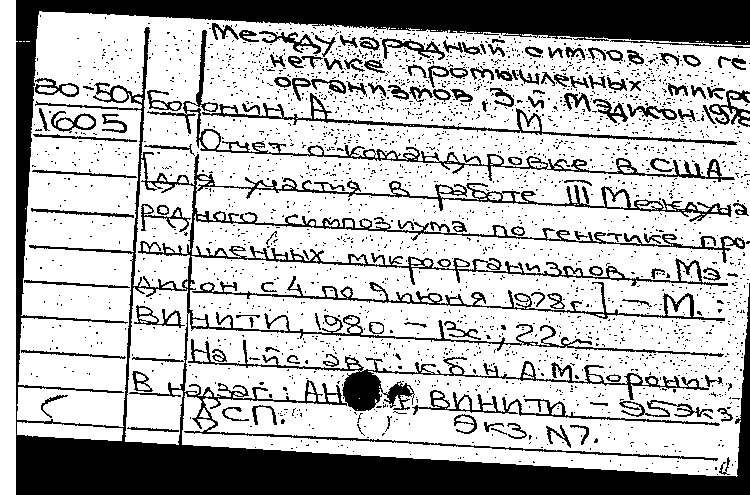 Международный симпоз. по ге
нетике промышленных микро
организмов, 3-й. Мэдисон. 1978
80-50к Боронин, А М
1605
Отчет о командировке в США
[для участия в работе III Междуна
родного симпозиума по генетике про
мышленных микроорганизмов, г. Мэ-
дисон, с 4 по 9 июня 1978 г.]. - М.:
ВИНИТИ, 1980. - 13с.; 22см.
На 1-й с. авт.: к.б.н. А.М. Боронин.
В надзаг.: АН ВИНИТИ. - 95экз.
ДСП. Экз. N7.